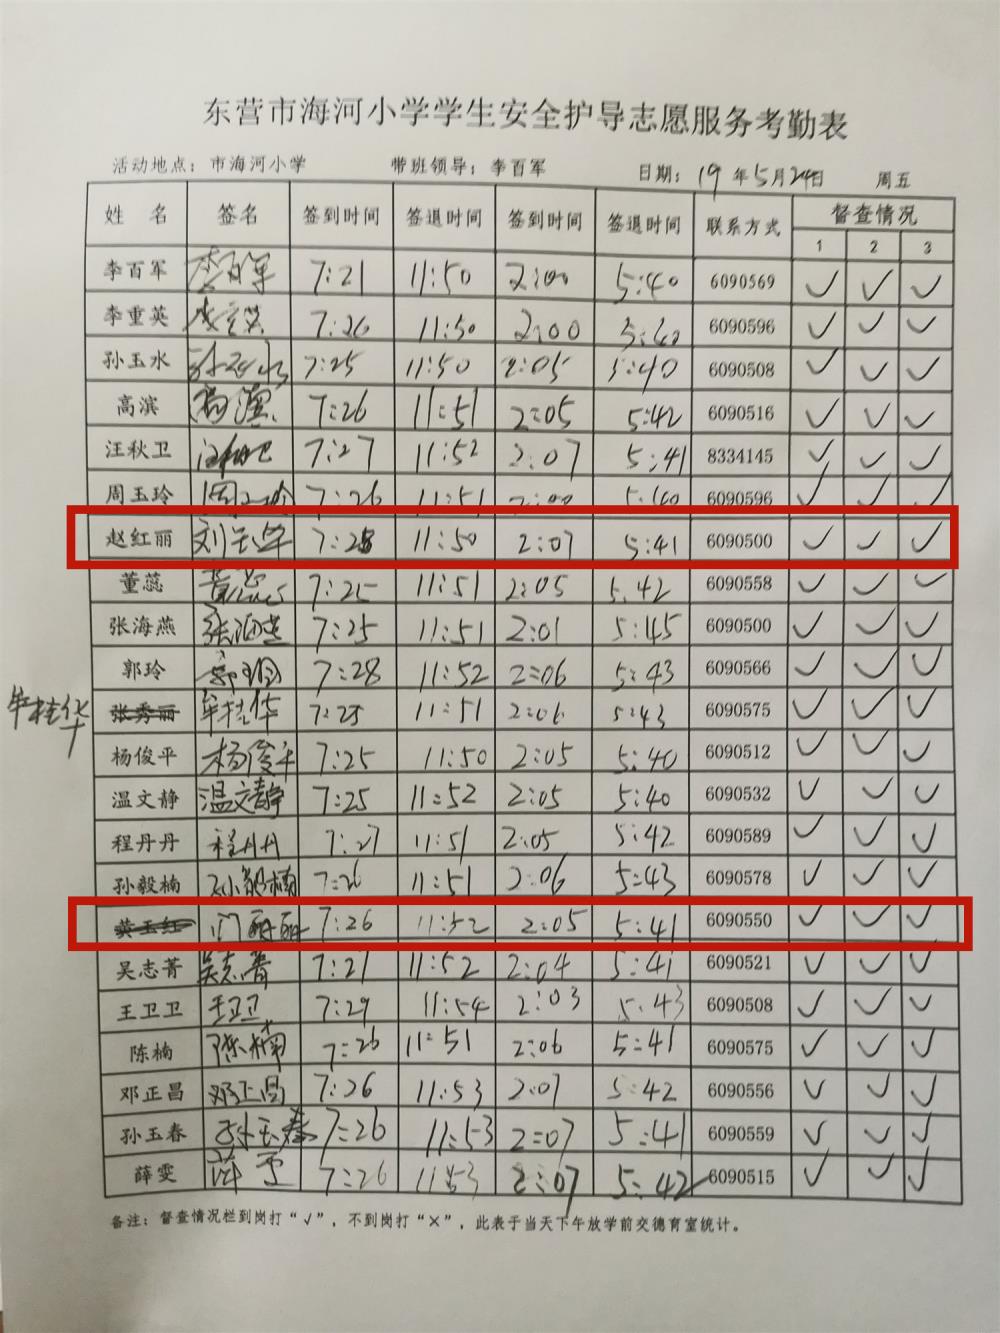 东营市海河小学学生安全护导志愿服务考勤表
活动地点：市海河小学 带班领导：李百军 日期：19年5月24日 周五
姓 名 签名 签到时间 签退时间 签到时间 签退时间 联系方式 督查情况
1 2 3
李百军 李百军 7:21 11:50 2:00 5:40 6090569 ✓ ✓ ✓
李重英 李重英 7:26 11:50 2:00 5:40 6090596 ✓ ✓ ✓
孙玉水 孙玉水 7:25 11:50 2:05 5:40 6090508 ✓ ✓ ✓
高滨 高滨 7:26 11:51 2:05 5:42 6090516 ✓ ✓ ✓
汪秋卫 汪秋卫 7:27 11:52 2:07 5:41 8334145 ✓ ✓ ✓
周玉玲 周玉玲 7:26 11:51 2:00 5:40 6090596 ✓ ✓ ✓
赵红丽 7:28 11:50 2:07 5:41 6090500 ✓ ✓ ✓
董蕊 董蕊 7:25 11:51 2:05 5:42 6090558 ✓ ✓ ✓
张海燕 张海燕 7:25 11:51 2:01 5:45 6090500 ✓ ✓ ✓
郭玲 郭玲 7:28 11:52 2:06 5:43 6090566 ✓ ✓ ✓
牟桂华 张秀丽 牟桂华 7:25 11:51 2:06 5:43 6090575 ✓ ✓ ✓
杨俊平 杨俊平 7:25 11:50 2:05 5:40 6090512 ✓ ✓ ✓
温文静 温文静 7:25 11:52 2:05 5:40 6090532 ✓ ✓ ✓
程丹丹 程丹丹 7:27 11:51 2:05 5:42 6090589 ✓ ✓ ✓
孙毅楠 孙毅楠 7:26 11:51 2:06 5:43 6090578 ✓ ✓ ✓
门丽丽 7:26 11:52 2:05 5:41 6090550 ✓ ✓ ✓
吴志菁 吴志菁 7:21 11:52 2:04 5:41 6090521 ✓ ✓ ✓
王卫卫 王卫卫 7:29 11:54 2:03 5:43 6090508 ✓ ✓ ✓
陈楠 陈楠 7:26 11:51 2:06 5:41 6090575 ✓ ✓ ✓
邓正昌 邓正昌 7:26 11:53 2:07 5:42 6090556 ✓ ✓ ✓
孙玉春 孙玉春 7:26 11:53 2:07 5:41 6090559 ✓ ✓ ✓
薛雯 薛雯 7:26 11:53 2:07 5:42 6090515 ✓ ✓ ✓
备注：督查情况栏到岗打“√”，不到岗打“×”，此表于当天下午放学前交德育室统计。